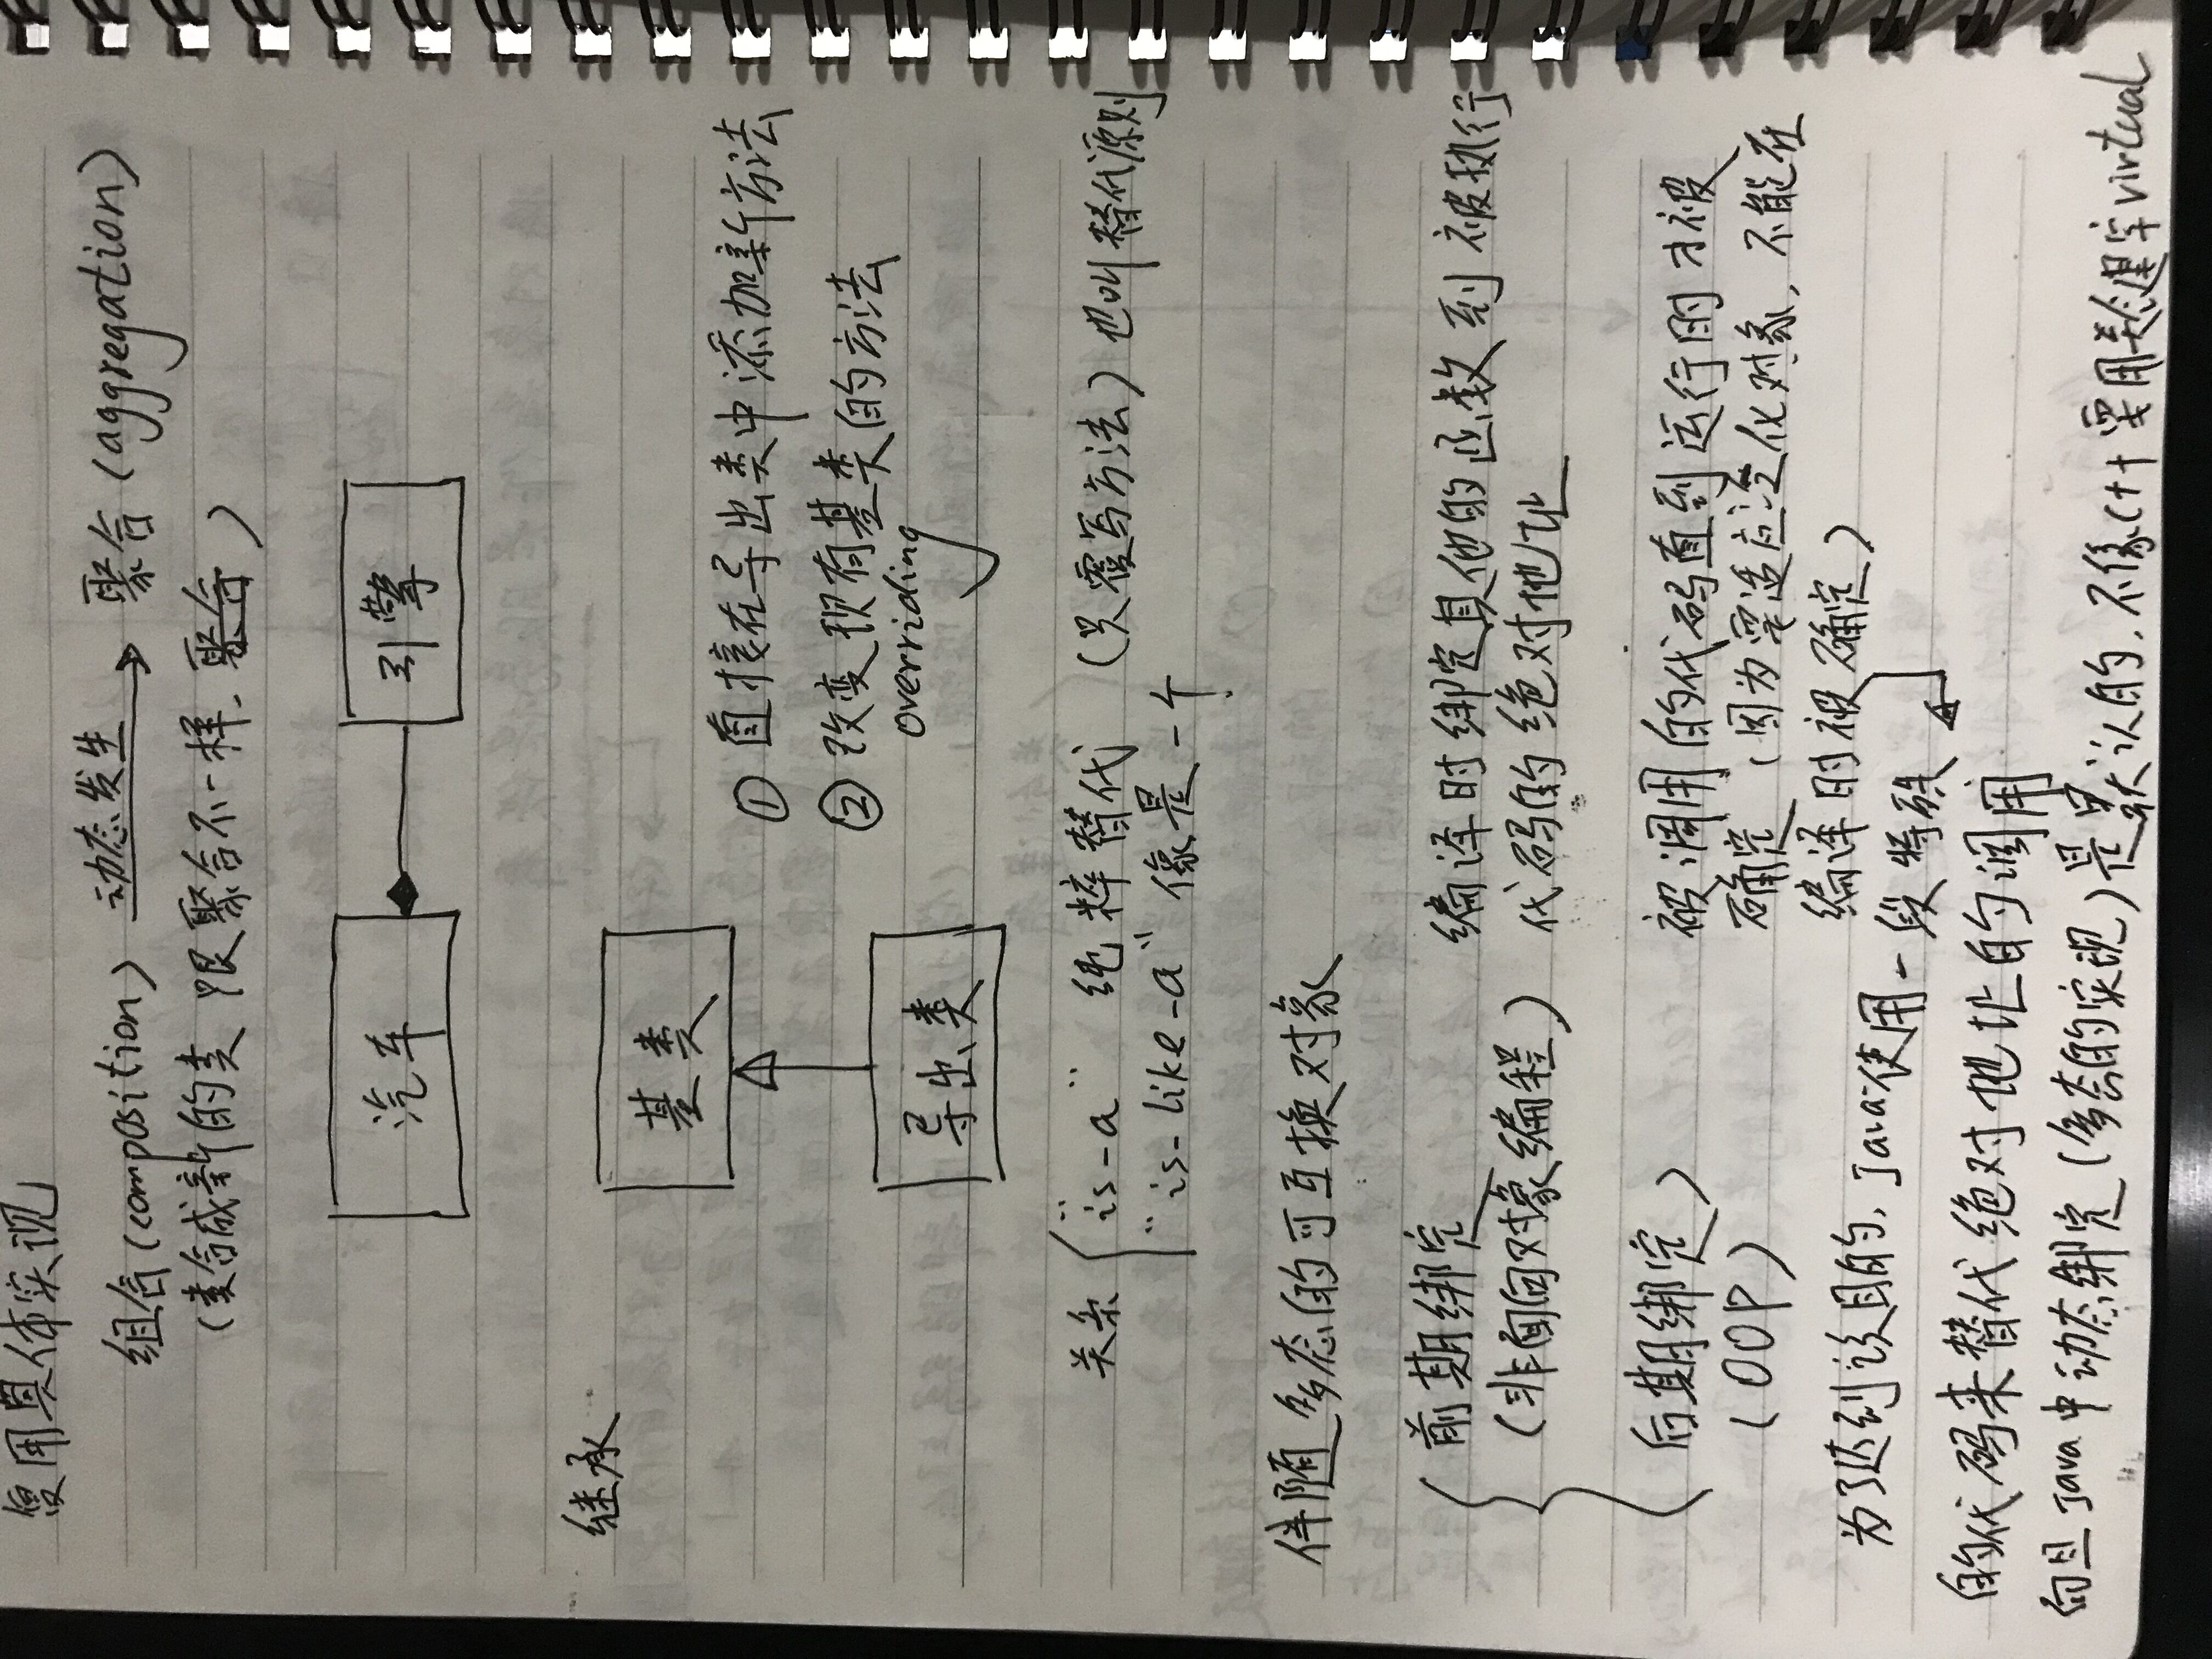 复用具体实现
组合(composition) 动态发生 聚合(aggregation)
(类合成新的类 跟聚合不一样. 聚合)
汽车 引擎
继承
基类
① 直接在导出类中添加新方法
② 改变现有基类的方法
overriding
导出类
关系 "is-a" 纯粹替代 (只覆写方法) 也叫替代原则
"is-like-a" 像是一个
伴随多态的可互换对象
前期绑定 编译时绑定其他的函数到被执行
(非面向对象编程) 代码的绝对地址
后期绑定) 被调用的代码直到运行时才被
(OOP) 确定 (因为要适应泛化对象, 不能在
编译时被确定)
为了达到该目的, Java使用一段特殊
的代码来替代绝对地址的调用
而且Java中动态绑定(多态的实现)是默认的, 不像C++要用关键字virtual